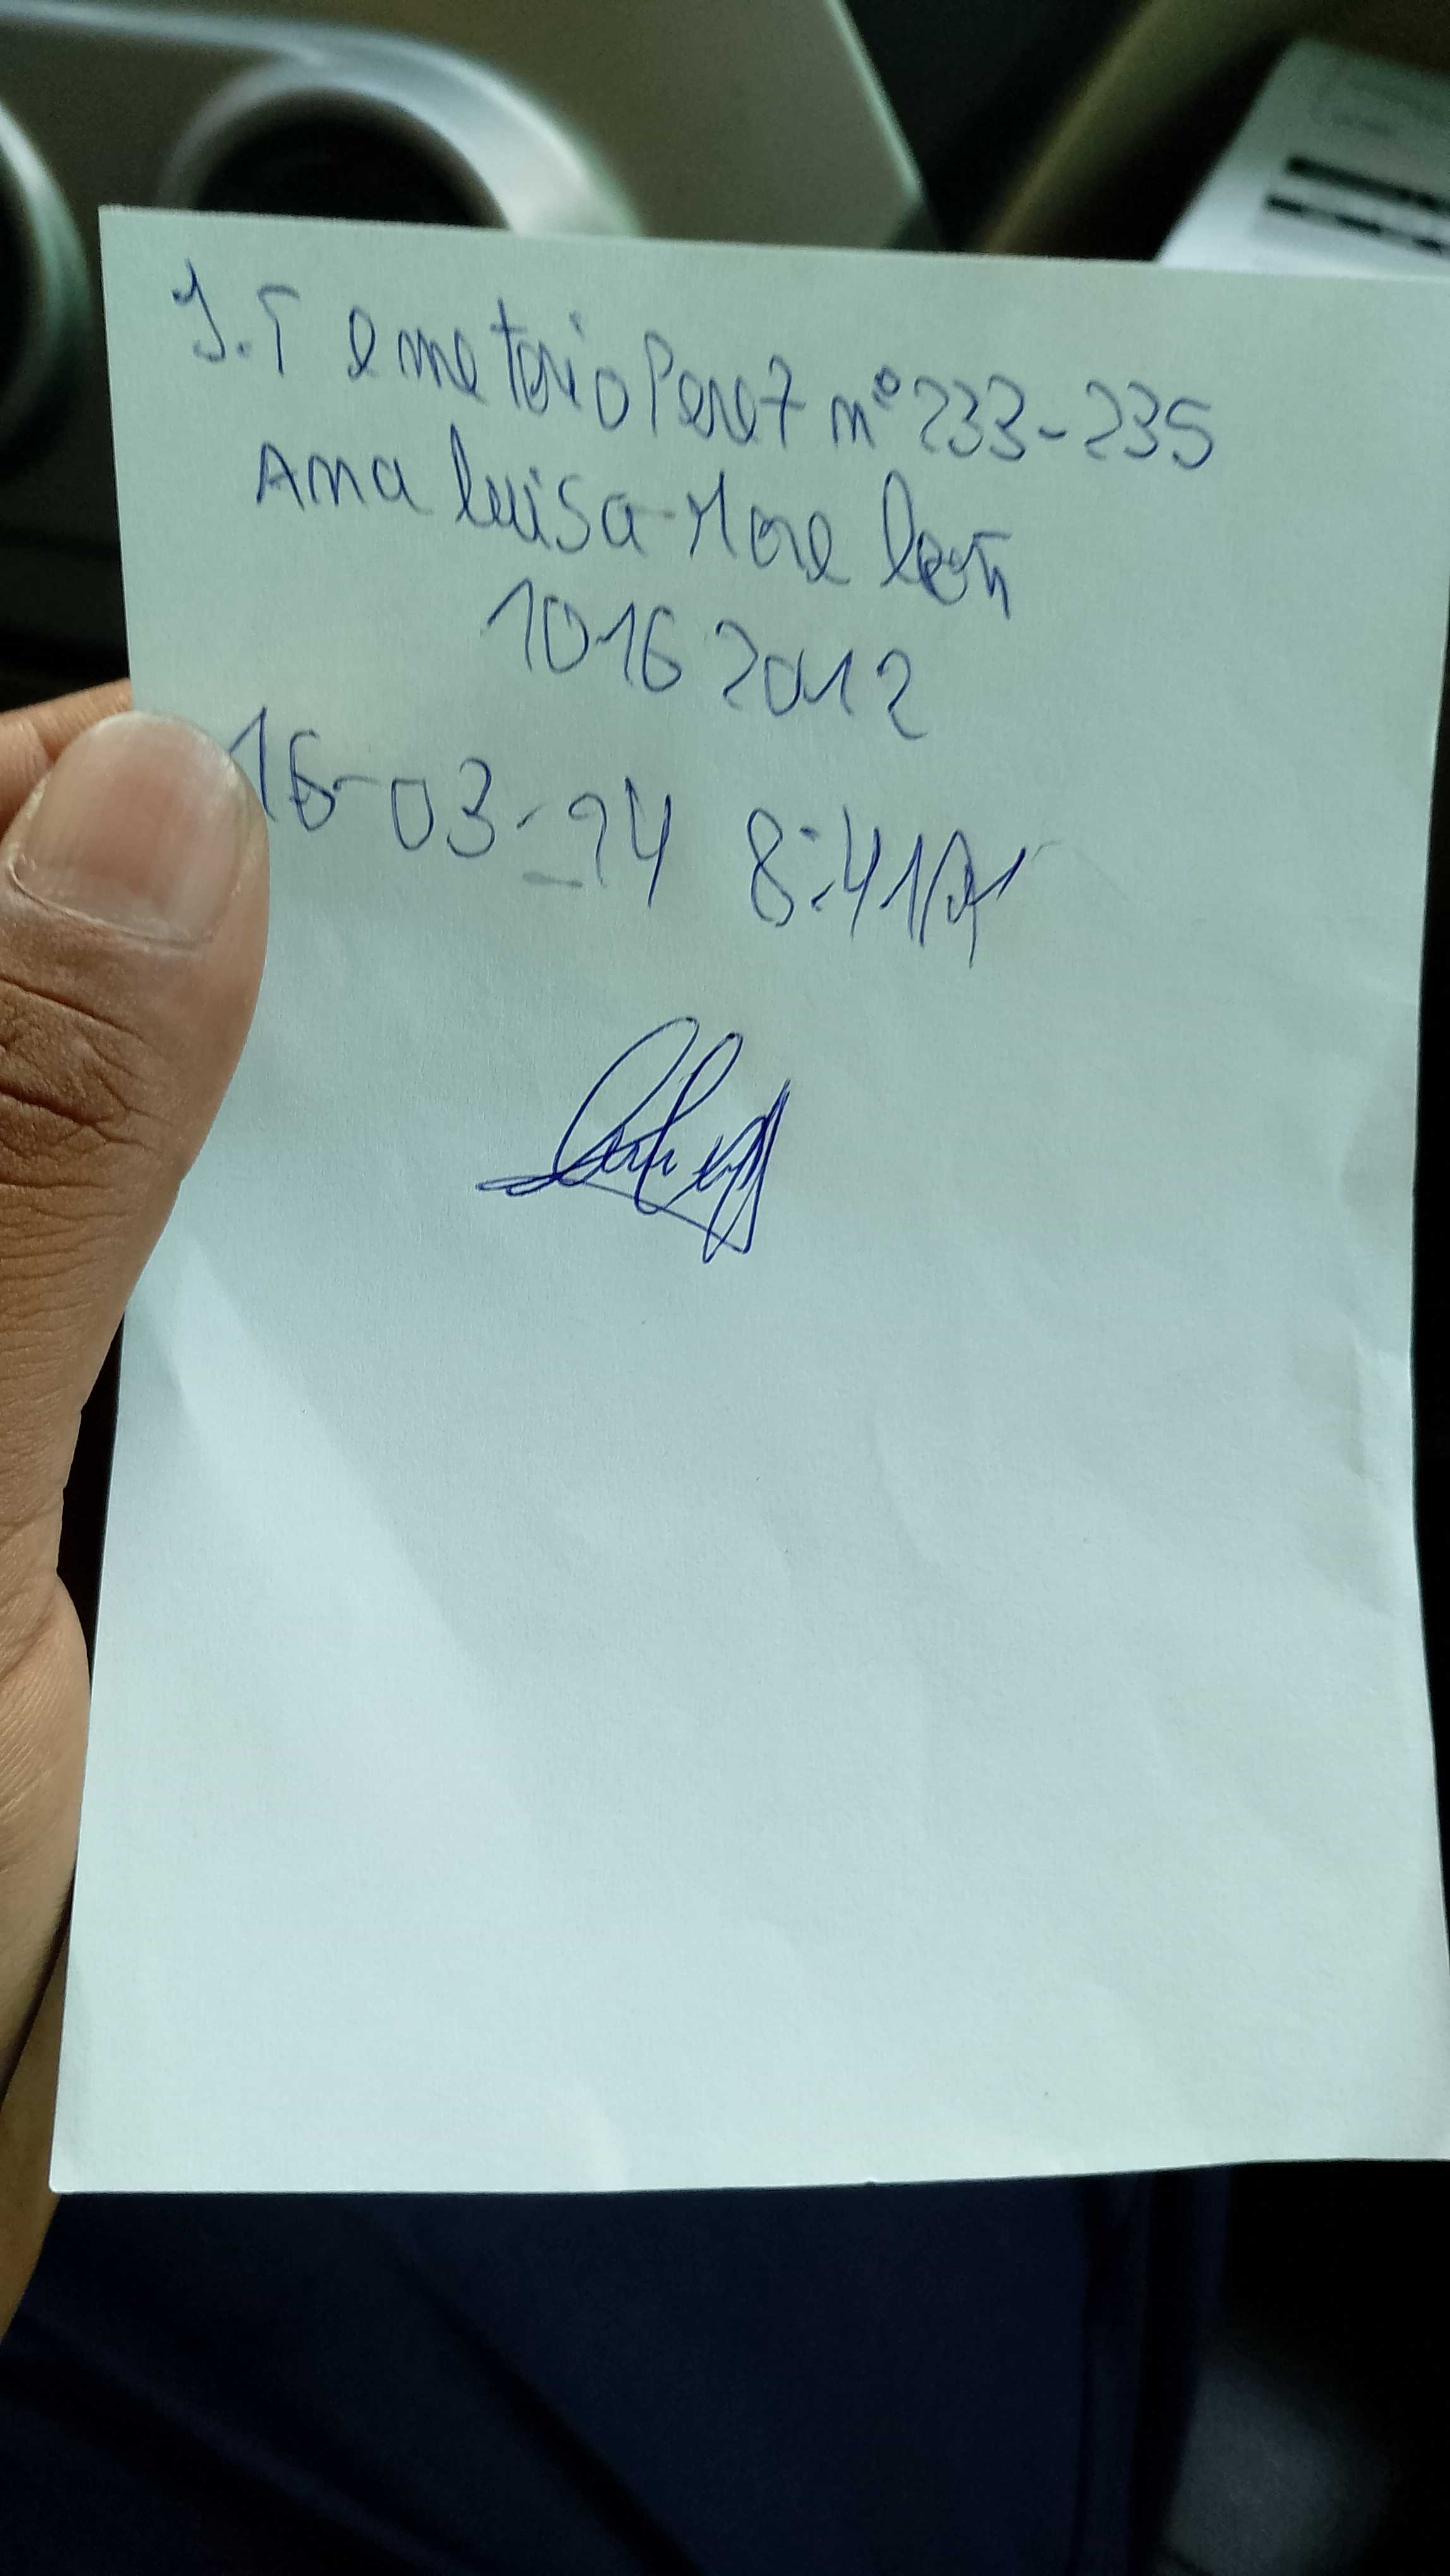 J.T emeterio Perez nº 233-235
Ana luisa More león
10162012
16-03-24 8:41